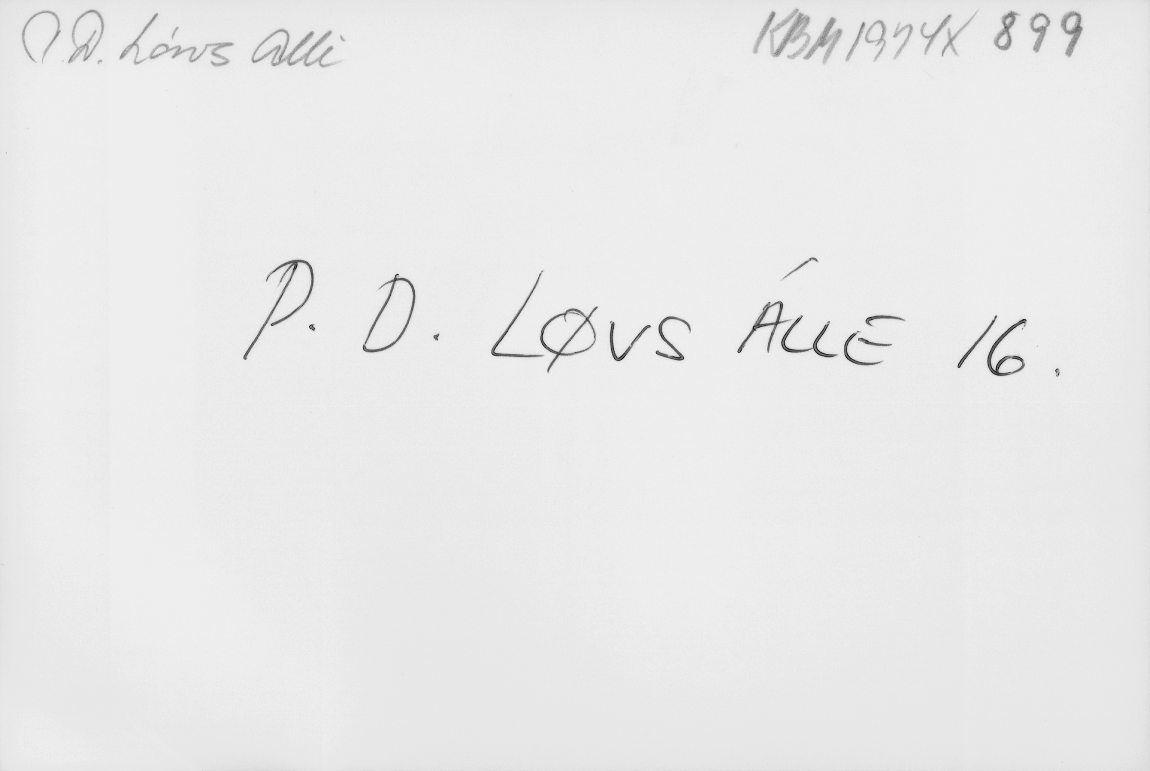 P.D. Løvs Alle
KBM 1974X 899
P. D. LØVS ÁLLE 16.